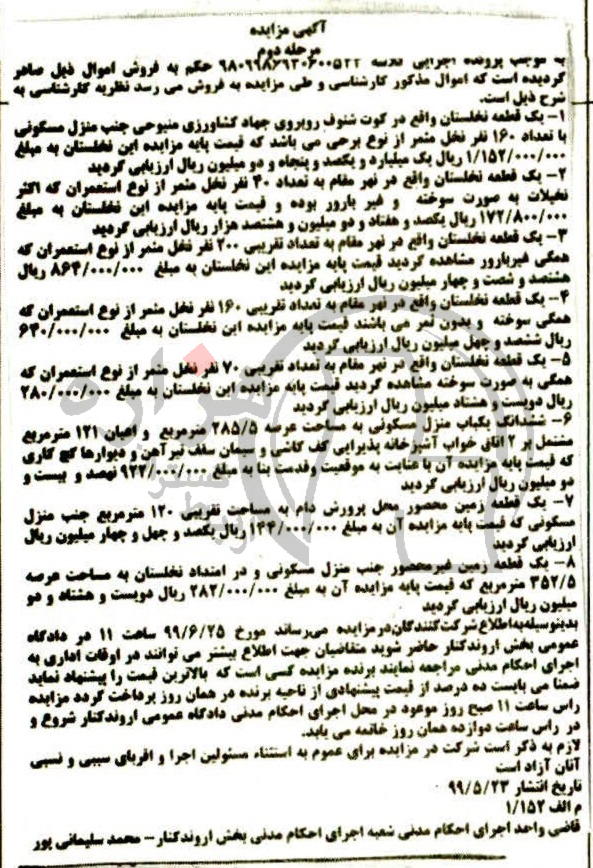 آگهی مزایده
مرحله دوم
به موجب پرونده اجرایی کلاسه ۹۸۰۹۹۸۶۹۳۰۶۰۰۵۲۲ حکم به فروش اموال ذیل صادر
گردیده است که اموال مذکور کارشناسی و طی مزایده به فروش می رسد نظریه کارشناسی به
شرح ذیل است.
۱- یک قطعه نخلستان واقع در کوت شنوف روبروی جهاد کشاورزی منیوحی جنب منزل مسکونی
با تعداد ۱۶۰ نفر نخل مثمر از نوع برحی می باشد که قیمت پایه مزایده این نخلستان به مبلغ
۱/۱۵۲/۰۰۰/۰۰۰ ریال یک میلیارد و یکصد و پنجاه و دو میلیون ریال ارزیابی گردید
۲- یک قطعه نخلستان واقع در نهر مقام به تعداد ۴۰ نفر نخل مثمر از نوع استعمران که اکثر
نخیلات به صورت سوخته و غیر بارور بوده و قیمت پایه مزایده این نخلستان به مبلغ
۱۷۲/۸۰۰/۰۰۰ ریال یکصد و هفتاد و دو میلیون و هشتصد هزار ریال ارزیابی گردید
۳- یک قطعه نخلستان واقع در نهر مقام به تعداد تقریبی ۲۰۰ نفر نخل مثمر از نوع استعمران که
همگی غیربارور مشاهده گردید قیمت پایه مزایده این نخلستان به مبلغ ۸۶۴/۰۰۰/۰۰۰ ریال
هشتصد و شصت و چهار میلیون ریال ارزیابی گردید
۴- یک قطعه نخلستان واقع در نهر مقام به تعداد تقریبی ۱۶۰ نفر نخل مثمر از نوع استعمران که
همگی سوخته و بدون ثمر می باشند قیمت پایه مزایده این نخلستان به مبلغ ۶۴۰/۰۰۰/۰۰۰
ریال ششصد و چهل میلیون ریال ارزیابی گردید
۵- یک قطعه نخلستان واقع در نهر مقام به تعداد تقریبی ۷۰ نفر نخل مثمر از نوع استعمران که
همگی به صورت سوخته مشاهده گردید قیمت پایه مزایده این نخلستان به مبلغ ۲۸۰/۰۰۰/۰۰۰
ریال دویست و هشتاد میلیون ریال ارزیابی گردید
۶- ششدانگ یکباب منزل مسکونی به مساحت عرصه ۲۸۵/۵ مترمربع و اعیان ۱۲۱ مترمربع
مشتمل بر ۲ اتاق خواب آشپزخانه پذیرایی کف کاشی و سیمان سقف تیرآهن و دیوارها گچ کاری
که قیمت پایه مزایده آن با عنایت به موقعیت وقدمت بنا به مبلغ ۹۲۲/۰۰۰/۰۰۰ نهصد و بیست و
دو میلیون ریال ارزیابی گردید
۷- یک قطعه زمین محصور محل پرورش دام به مساحت تقریبی ۱۲۰ مترمربع جنب منزل
مسکونی که قیمت پایه مزایده آن به مبلغ ۱۴۴/۰۰۰/۰۰۰ ریال یکصد و چهل و چهار میلیون ریال
ارزیابی گردید
۸- یک قطعه زمین غیرمحصور جنب منزل مسکونی و در امتداد نخلستان به مساحت عرصه
۳۵۲/۵ مترمربع که قیمت پایه مزایده آن به مبلغ ۲۸۲/۰۰۰/۰۰۰ ریال دویست و هشتاد و دو
میلیون ریال ارزیابی گردید
بدینوسیله به اطلاع شرکت کنندگان در مزایده میرساند مورخ ۹۹/۶/۲۵ ساعت ۱۱ در دادگاه
عمومی بخش اروندکنار حاضر شوید متقاضیان جهت اطلاع بیشتر می توانند در اوقات اداری به
اجرای احکام مدنی مراجعه نمایند برنده مزایده کسی است که بالاترین قیمت را پیشنهاد نماید
ضمنا می بایست ده درصد از قیمت پیشنهادی از ناحیه برنده در همان روز پرداخت گردد مزایده
راس ساعت ۱۱ صبح روز موعود در محل اجرای احکام مدنی دادگاه عمومی اروندکنار شروع و
در راس ساعت دوازده همان روز خاتمه می یابد.
لازم به ذکر است شرکت در مزایده برای عموم به استثناء مسئولین اجرا و اقربای سببی و نسبی
آنان آزاد است
تاریخ انتشار ۹۹/۵/۲۳
م الف ۱/۱۵۲
قاضی واحد اجرای احکام مدنی شعبه اجرای احکام مدنی بخش اروندکنار – محمد سلیمانی پور